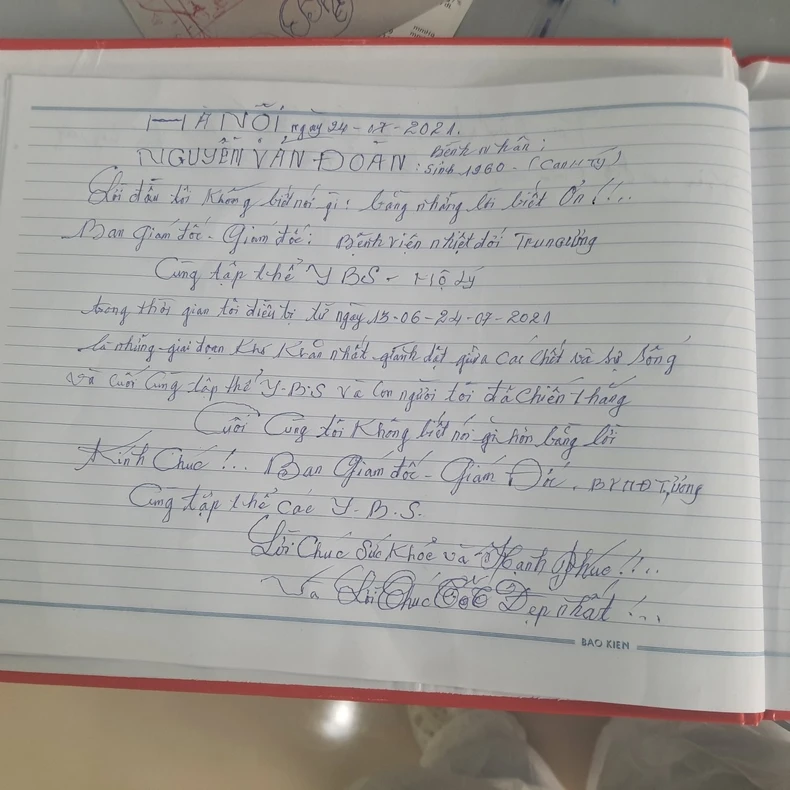 HÀ NỘI ngày 24-07-2021.
NGUYỄN VĂN ĐOÀN: Bệnh nhân: Sinh 1960 - (Canh Tý)
Lời đầu tôi không biết nói gì: bằng những lời biết Ơn!...
Ban Giám đốc - Giám đốc: Bệnh viện nhiệt đới Trung ương
Cùng tập thể Y BS - Hộ Lý
trong thời gian tôi điều trị từ ngày 13-06-24-07-2021
là những giai đoạn khó khăn nhất giành dật giữa các chết và sự sống
và cuối cùng tập thể Y-B.S và con người tôi đã chiến thắng
Cuối Cùng tôi không biết nói gì hơn bằng lời
Kính Chúc!... Ban Giám đốc - Giám Đốc. BVNĐ T,Ương
Cùng tập thể các Y-B.S.
Lời Chúc Sức Khoẻ và Hạnh Phúc!!...
Và Lời Chúc Tốt Đẹp nhất!...
BAO KIEN